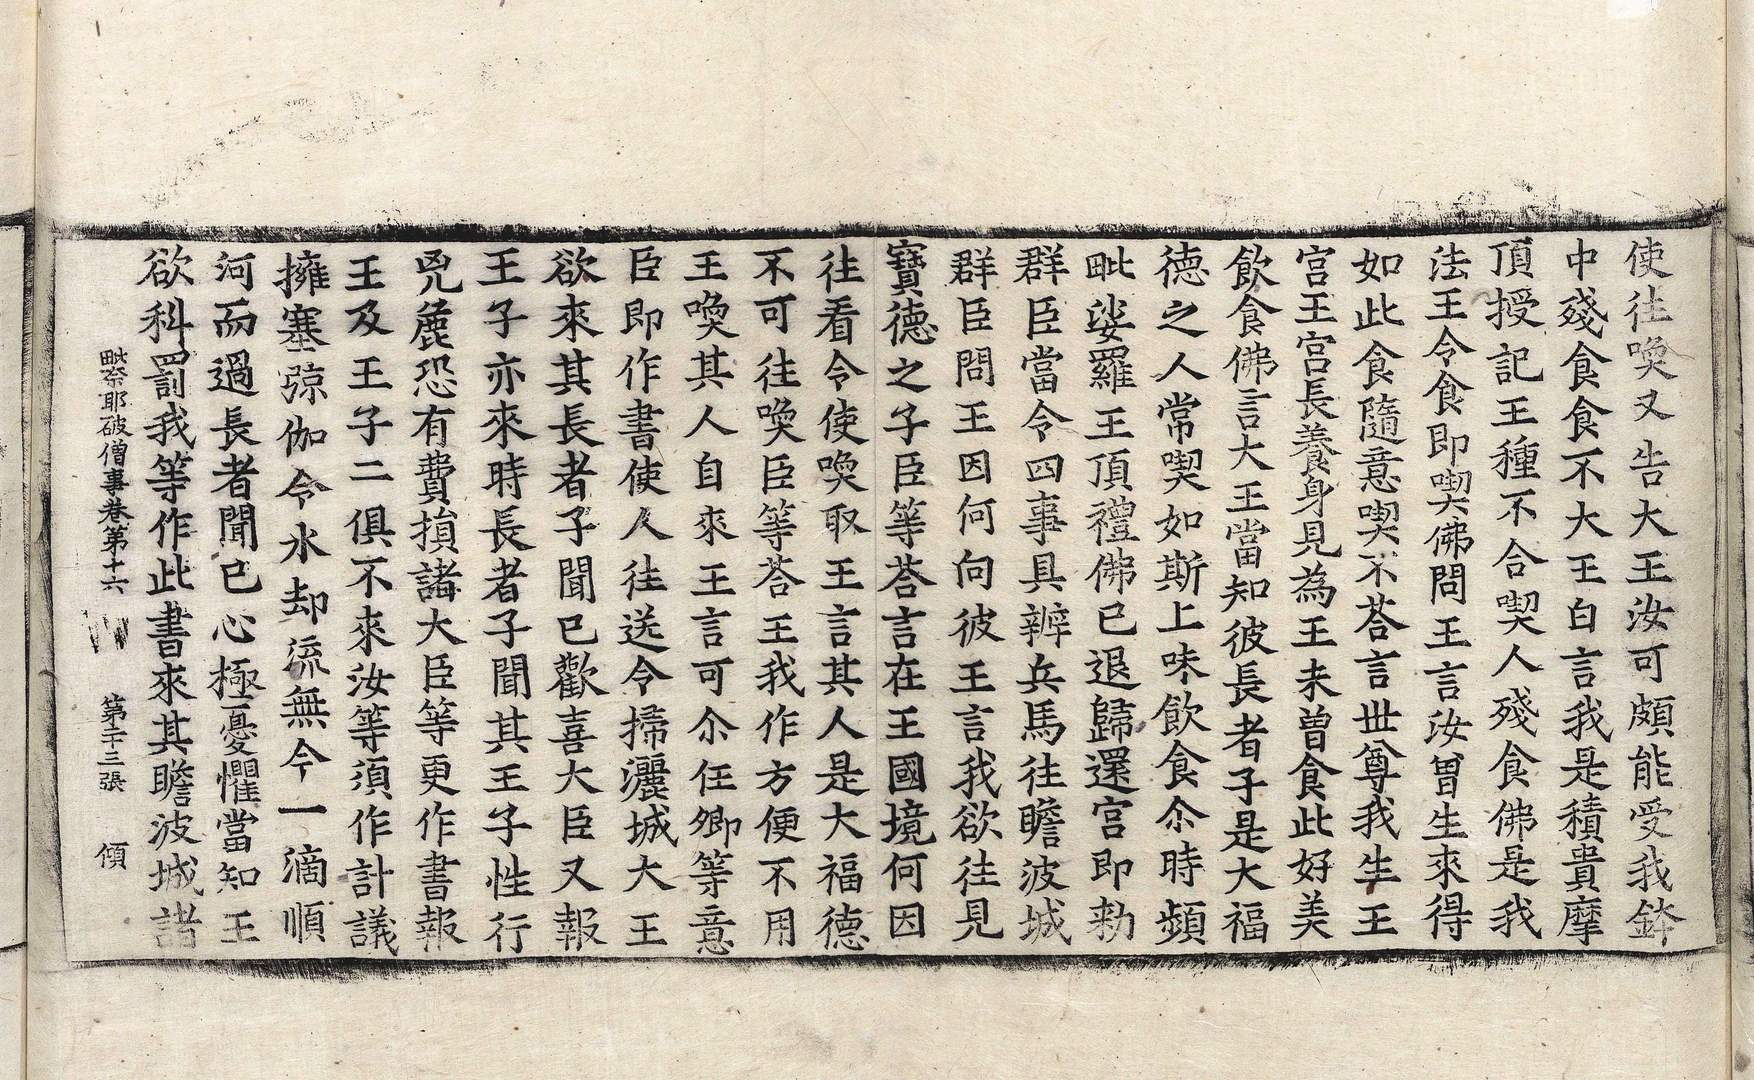 使往喚又告大王汝可頗能受我鉢
中殘食食不大王白言我是積貴摩
頂授記王種不合喫人殘食佛是我
法王令食即喫佛問王言汝曽生來得
如此食隨意喫不荅言世尊我生王
宮王宮長養身見為王未曽食此好美
飲食佛言大王當知彼長者子是大福
德之人常喫如斯上味飲食尒時頻
毗娑羅王頂禮佛已退歸還宮即勑
群臣當令四事具辦兵馬往瞻波城
群臣問王因何向彼王言我欲往見
寶德之子臣等荅言在王國境何因
往看令使喚取王言其人是大福德
不可往喚臣等荅王我作方便不用
王喚其人自來王言可尒任卿等意
臣即作書使人往送令掃灑城大王
欲來其長者子聞已歡喜大臣又報
王子亦來時長者子聞其王子性行
兇麁恐有費損諸大臣等更作書報
王及王子二俱不來汝等須作計議
擁塞弶伽令水却流無令一滴順
河而過長者聞已心極憂懼當知王
欲科罰我等作此書來其瞻波城諸
毗柰耶破僧事卷第十六 第十三張 傾